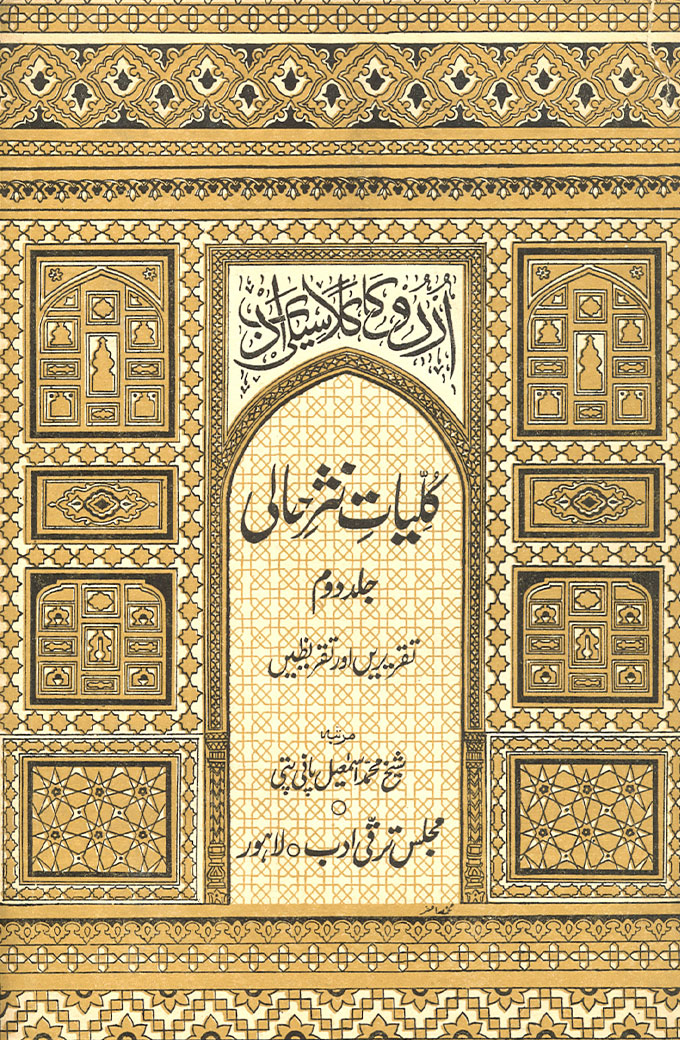 اُردُو کا کلاسیکی ادب
کُلّیاتِ نثرِ حالی
جلد دوم
تقریریں اور تقریظیں
مرتبہ
شیخ محمد اسمٰعیل پانی پتی
مجلس ترقّی ادب ○ لاہور